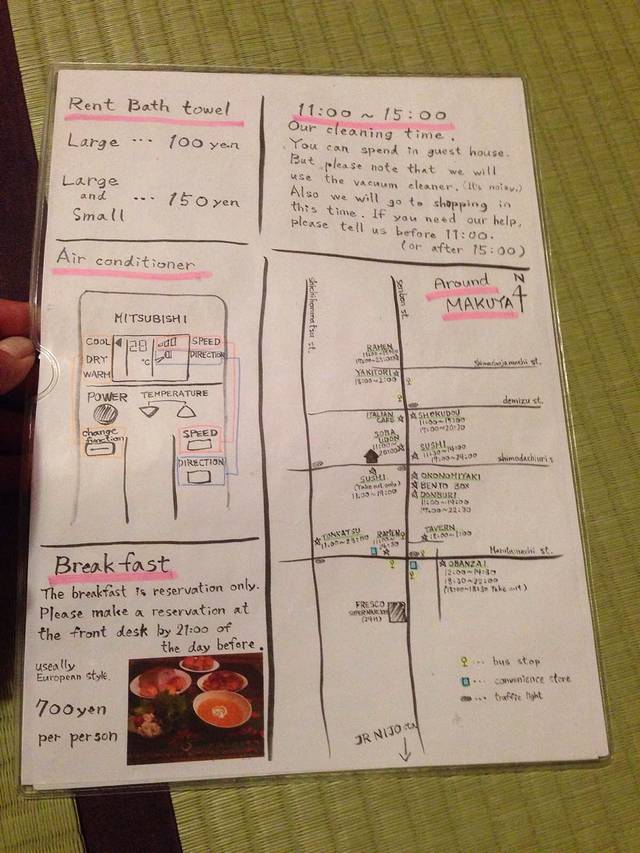 Rent Bath towel
Large ... 100 yen
Large
and
Small
... 150 yen
11:00 ~ 15:00
Our cleaning time.
You can spend in guest house.
But please note that we will
use the vacuum cleaner. (It's noisy.)
Also we will go to shopping in
this time. If you need our help,
please tell us before 11:00.
(or after 15:00)
Air conditioner
MITSUBISHI
COOL
DRY
WARM
28
°C
SPEED
DIRECTION
POWER
TEMPERATURE
change
function
SPEED
DIRECTION
Breakfast
The breakfast is reservation only.
Please make a reservation at
the front desk by 21:00 of
the day before.
useally
European style.
700 yen
per person
Around
MAKUYA
N
senbon st.
RAMEN
YAKITORI
18:00~2:00
demizu st.
ITALIAN
CAFE
SHOKUDOU
11:00~15:00
17:00~20:30
SOBA
UDON
SUSHI
17:00~24:00
shimodachiuri s
SUSHI
(Take out only)
OKONOMIYAKI
BENTO BOX
DONBURI
11:00~14:00
17:00~22:30
TONKATSU
11:00~23:00
RAMEN
TAVERN
18:00~1:00
Marutamachi st.
OBANZAI
12:00~14:30
18:30~22:00
FRESCO
SUPERMARKET
(24H)
... bus stop
... convenience store
... traffic light
JR NIJO stn